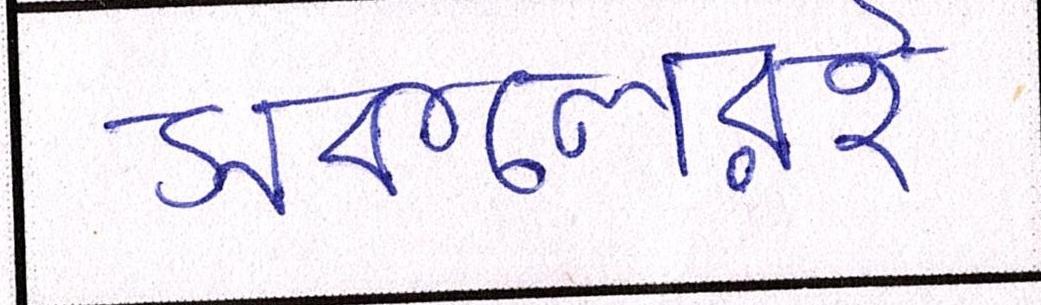 সকলেরই